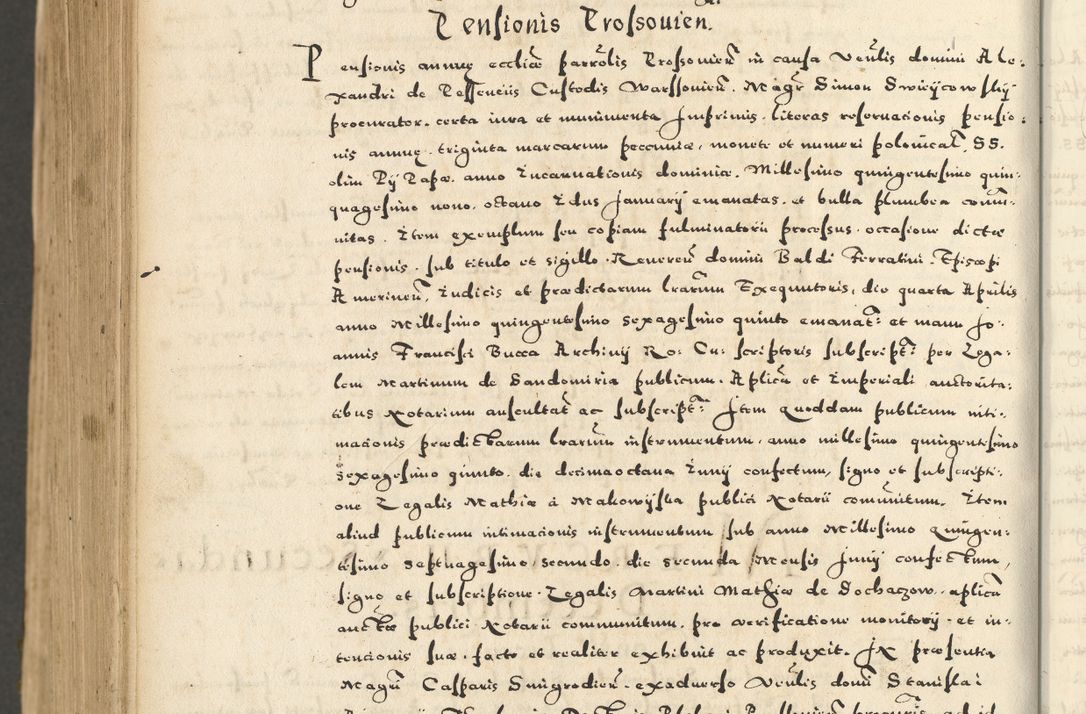 Pensionis Prossouien.
Pensionis annuę eccliæ parrolis Prossouien̄ in causa Venlis domini Ale-
xandri de Pessenciis Custodis Warssouien̄. Magr̄ Simon Swieijcowskij
procurator. certa iura et munimenta Inprimis. literas reseruacionis pensio-
nis annuę. triginta marcarum peccuniæ, monete et numeri polonical̄, SS.
olim Pij Papæ. anno Incarnationis dominicæ. Millesimo quingentesimo quin-
quagesimo nono. octauo Idus Januarij emanatas. et bulla plumbea com̄u-
nitas. Item exemplum seu copiam fulminatorii processus. occasione dictæ
pensionis. sub titulo et sigillo. Reueren̄ domini Baldi Ferratini. Episcopi
Amerinen̄, Iudicis et prædictarum lrarum Exequutoris, die quarta Aprilis
anno Millesimo quingentesimo sexagesimo quinto emanat: et manu Jo-
annis Francisci Bucca Archiuij Ro: Cu: scriptoris subscript: per Lega-
lem Martinum de Sandomiria publicum. Aplica et Imperiali auctorita-
tibus Notarium auscultat̄ ac subscript: Item quoddam publicum inti-
macionis prædictarum lrarum instrumentum, anno millesimo quingentesimo
sexagesimo quinto. die decimaoctaua Iunij confectum, signo et subscripti-
one Legalis Mathiæ à Makowijska publici Notarii com̄unitum. Item
aliud publicum intimacionis instrumentum sub anno Millesimo Quingen-
tesimo septuagesimo secundo. die secunda Mensis Junij confectum,
signo et subscriptione. Legalis Martini Mathiæ de Sochaczow. aplica
aucte publici Notarii communitum. pro verificatione monitorij. et in-
tencionis suæ. facto et realiter exhibuit ac produxit. In præsentia
Magri Casparis Smigrodien̄. exaduerso Venlis domi Stanislai